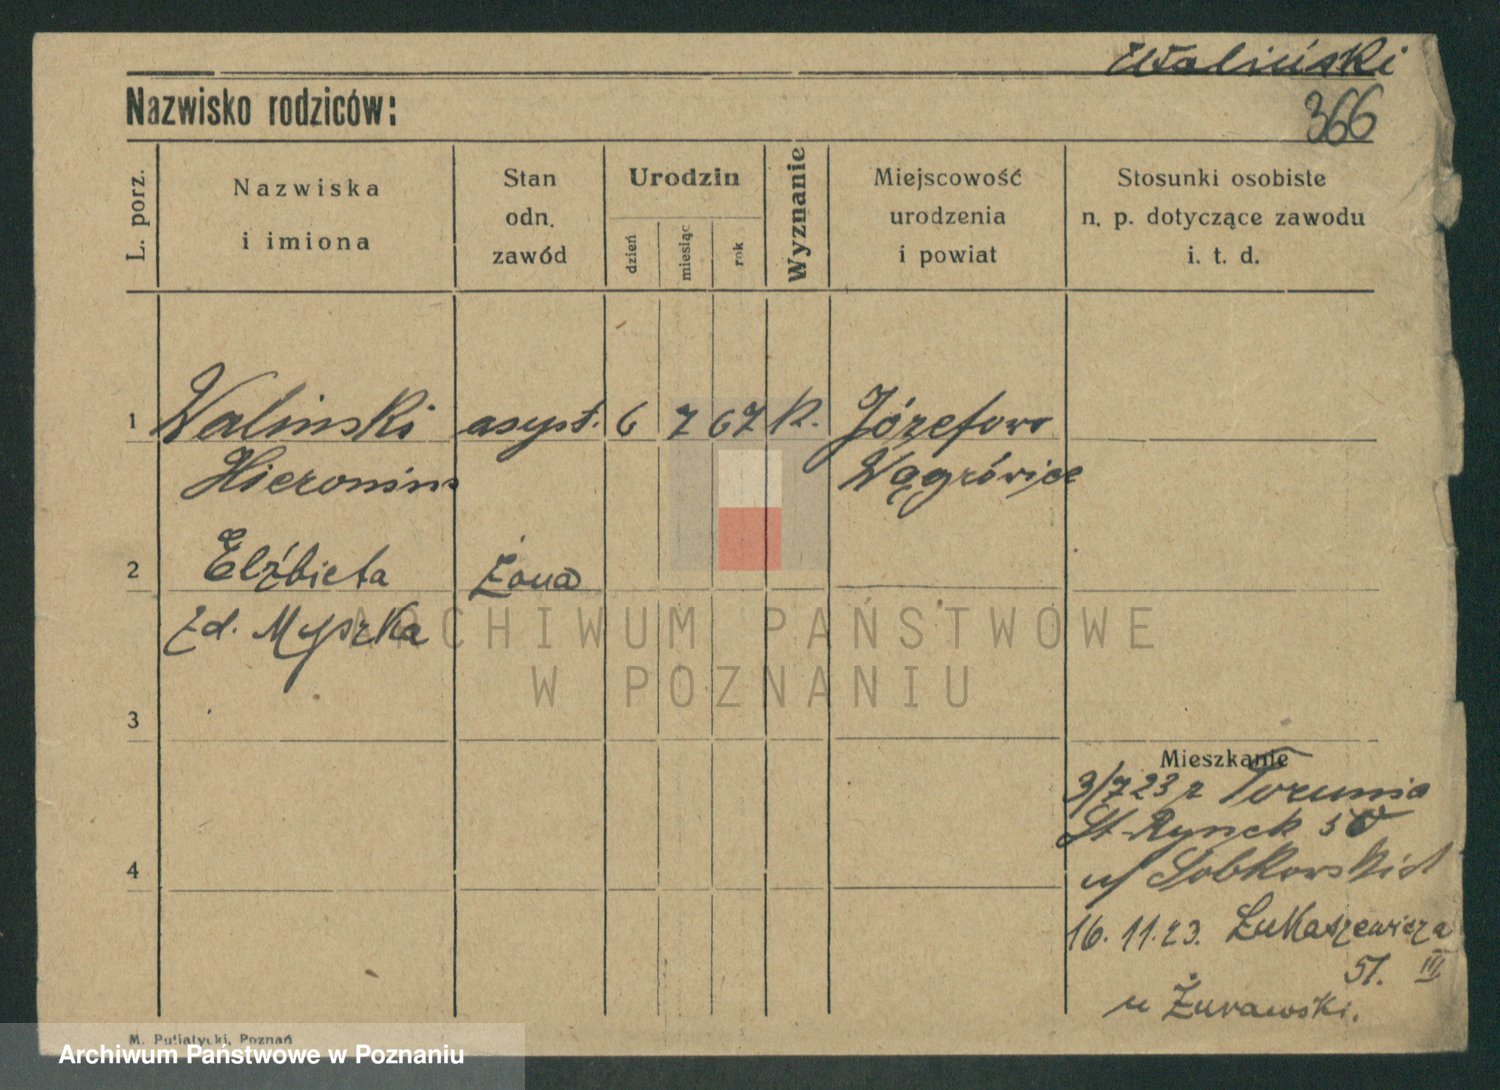 Waliński
366
Nazwisko rodziców:
L. porz.
Nazwiska
i imiona
Stan
odn.
zawód
Urodzin
dzień
miesiąc
rok
Wyznanie
Miejscowość
urodzenia
i powiat
Stosunki osobiste
n. p. dotyczące zawodu
i. t. d.
1 Walinski asyst. 6 7 67 K. Józefowo
Hieronim Wągrówiec
2 Elżbieta Żona
zd. Myszka
3
Mieszkanie
3/7 23 z Torunia
St-Rynek
4
u/ Sobkowskich
16. 11. 23. Łukaszewicza
51. III
u Żurawski.
M. Putiatycki, Poznań
ARCHIWUM PAŃSTWOWE
W POZNANIU
Archiwum Państwowe w Poznaniu